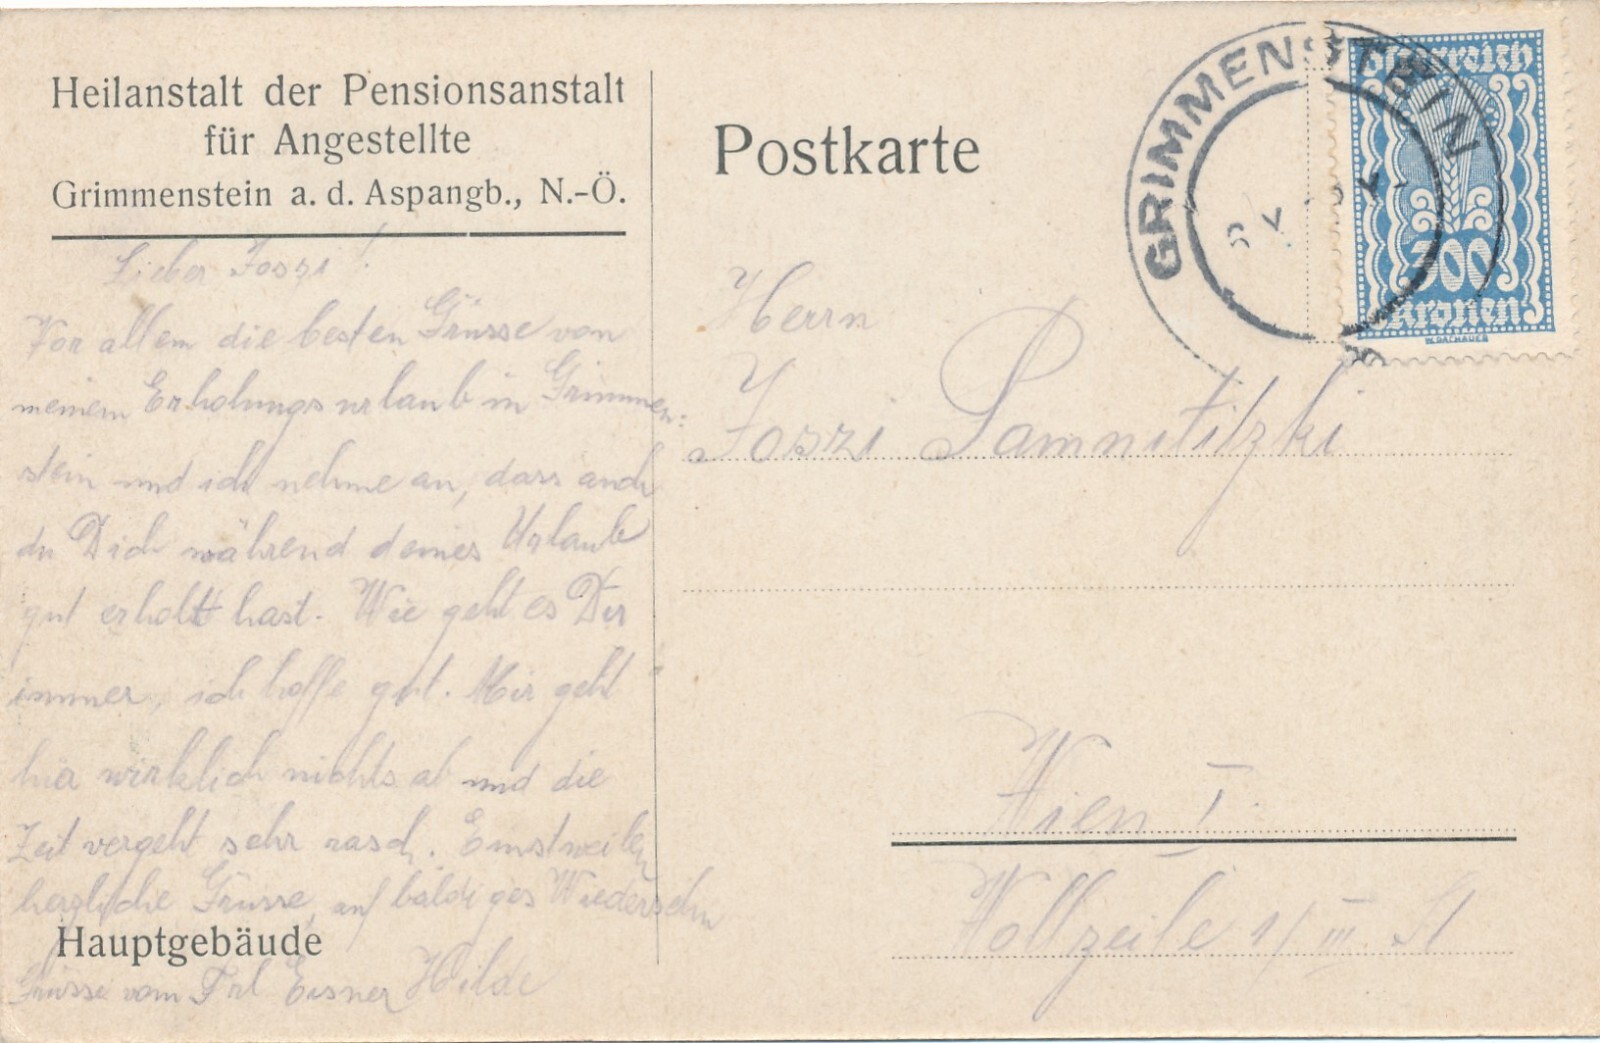 Heilanstalt der Pensionsanstalt
für Angestellte
Grimmenstein a. d. Aspangb., N.-Ö.
Lieber Joszi!
Vor allem die besten Grüsse von
meinem Erholungsurlaub in Grimmen:
stein und ich nehme an, dass auch
du Dich während deines Urlaub
gut erholt hast. Wie geht es Dir
immer, ich hoffe gut. Mir geht
hier wirklich nichts ab und die
Zeit vergeht sehr rasch. Einstweilen
herzliche Grüsse, auf baldiges Wiedersehn
Hilde
Hauptgebäude
Grüsse vom Frl Eisner
Postkarte
GRIMMENSTEIN
Österreich
300
Kronen
W.DACHAUER
Herrn
Joszi Samnitzki
Wien I.
Wollzeile 1/III. St